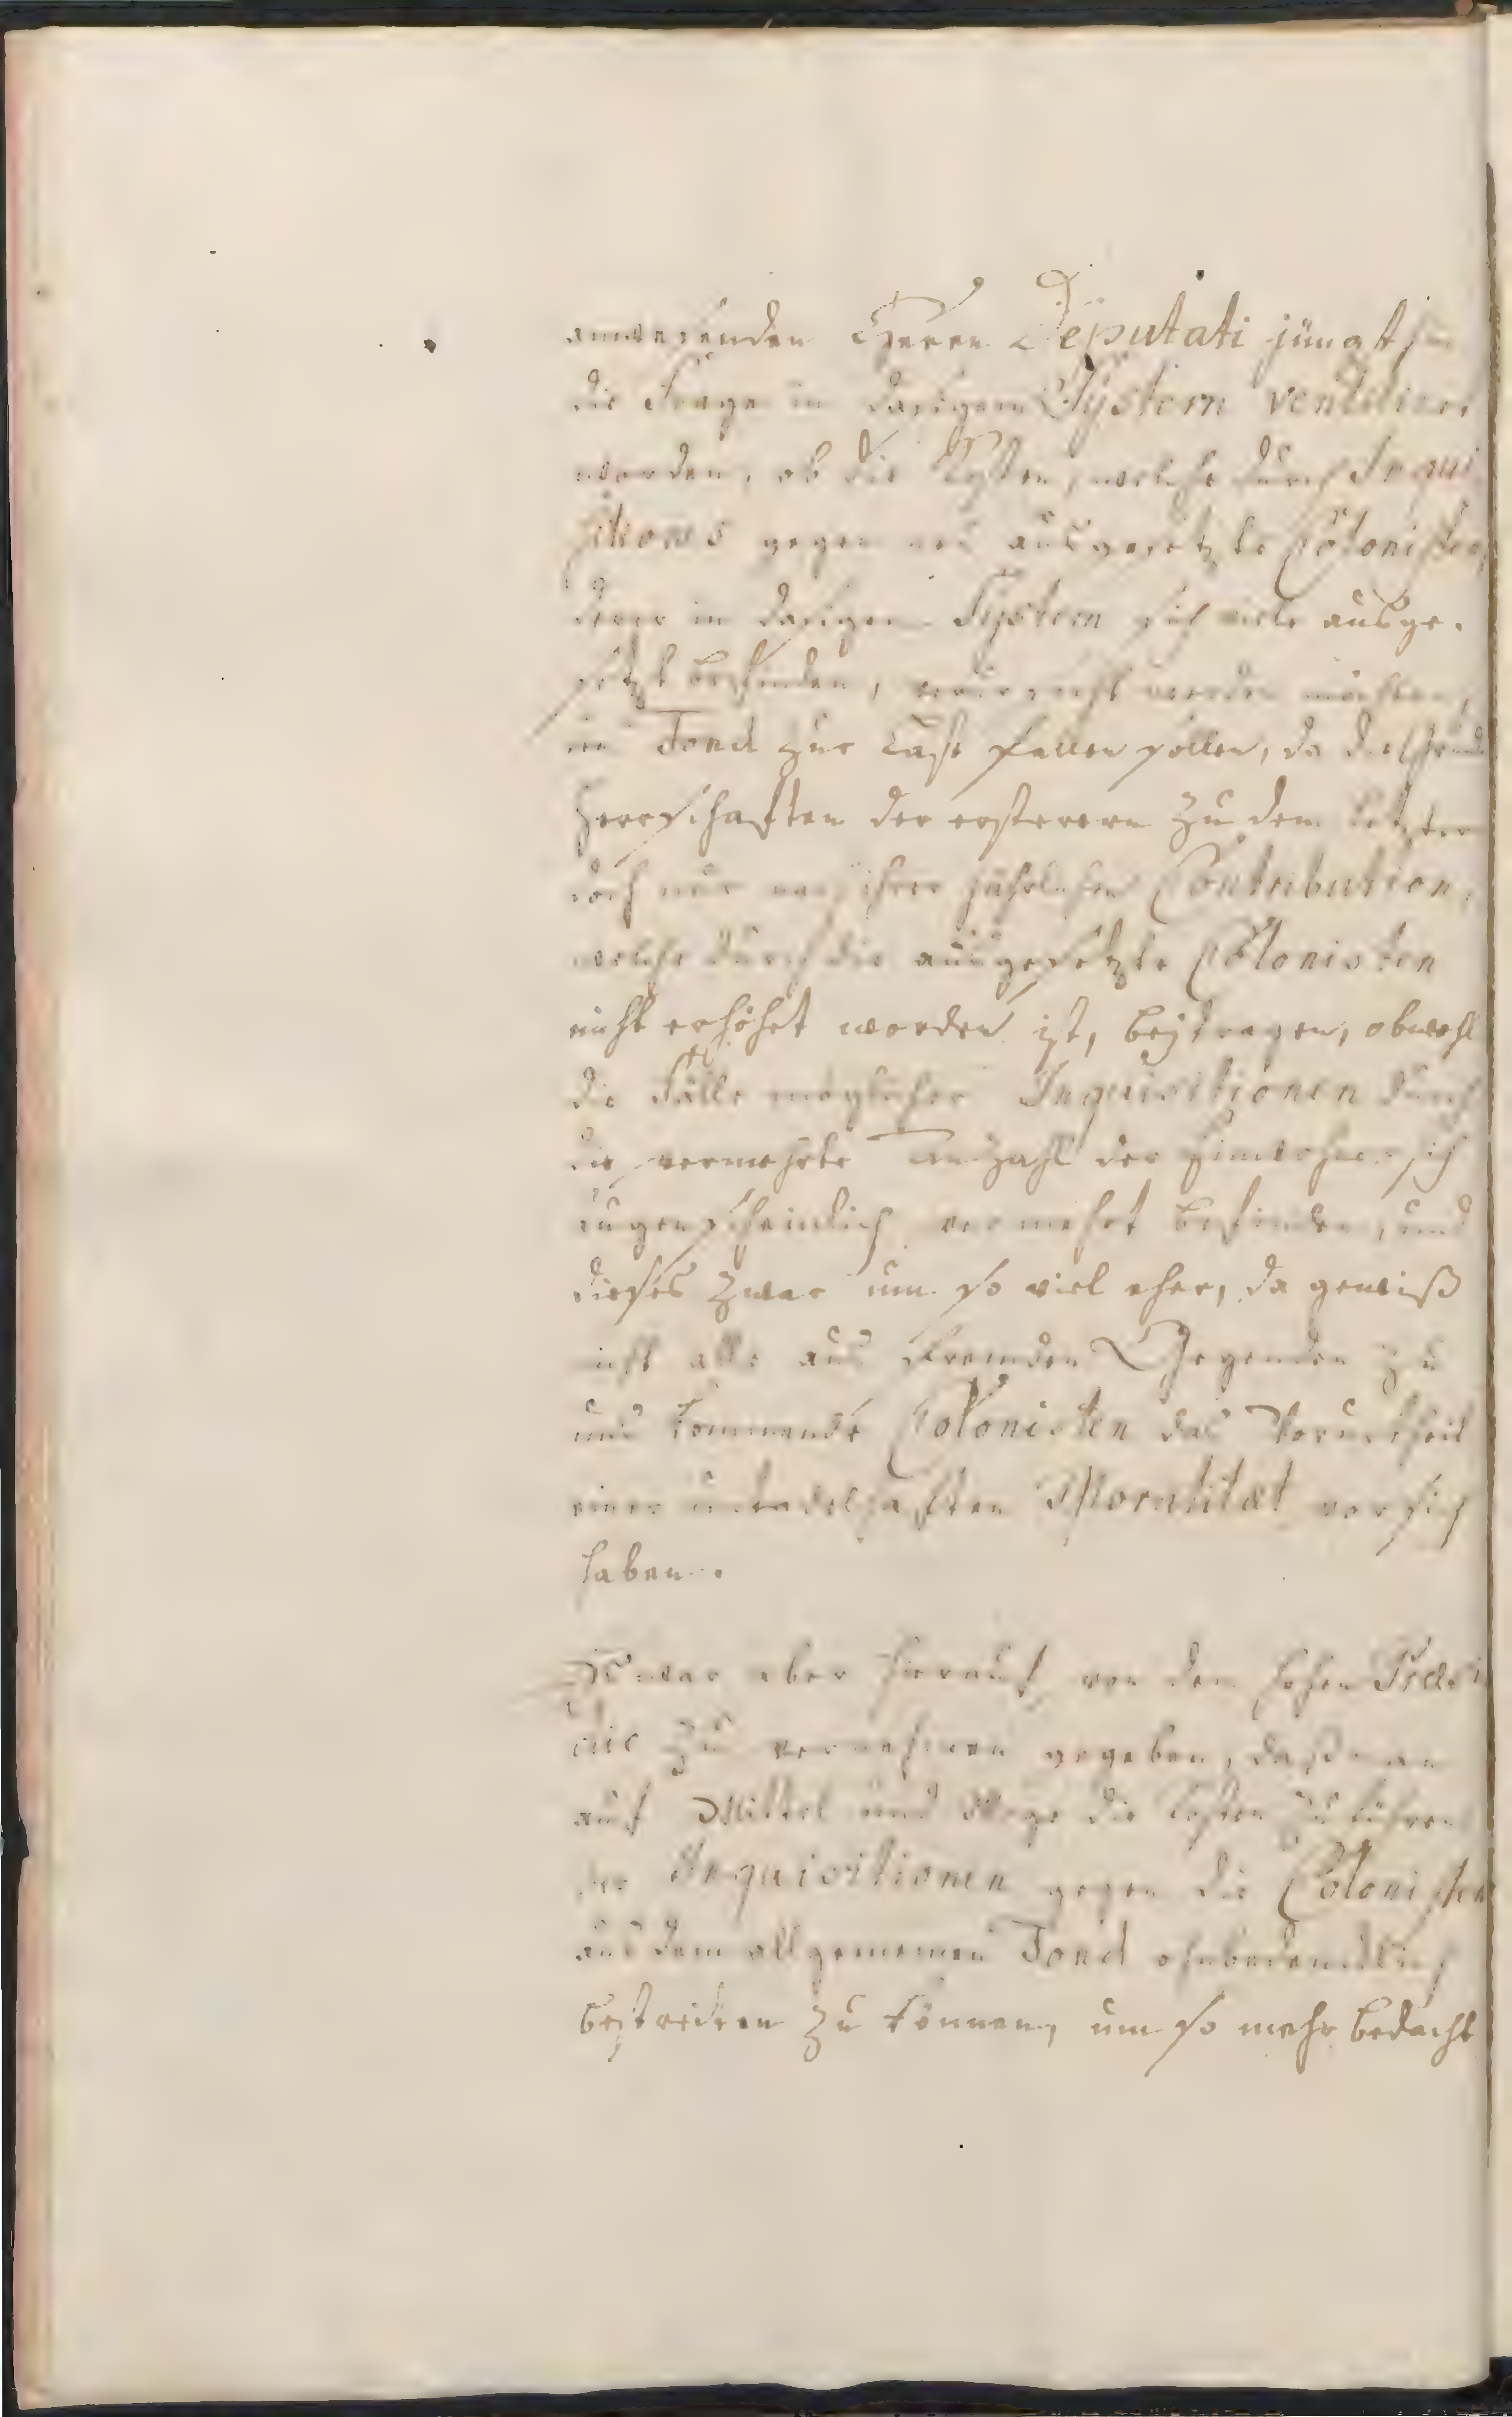 anwesenden Herrn Deputati jüngsthin
die Frage in dasigem System ventiliret
worden, ob die Kosten, welche durch Inqui
sitiones gegen neu ausgesetzte Colonisten,
derer in dasigem System sich viele ausge-
setzt befinden, verursacht werden möchten,
dem Fond zur Last fallen sollen, da die Grund
Herrschaften der ersteren zu dem letztern
doch nur nach ihrer jährlichen Contribution,
welche durch die ausgesetzte Colonisten
nicht erhöhet worden ist, beytragen, obwohl
die Fälle möglicher Inquisitionen durch
die vermehrte Anzahl der Einwohner sich
augenscheinlich vermehrt befinden, und
dieses zwar um so viel eher, da gewiß
nicht alle aus fremden Gegenden zu
uns kommende Colonisten das Vorurtheil
einer untadelhaften Moralität vor sich
haben.
Es war aber hierauf von dem hohen Præsi
dio zu vernehmen gegeben, daß man
auf Mittel und Wege die Kosten zu führen
der Inquisitionen gegen die Colonisten
aus dem allgemeinen Fond ohnbedencklich
bestreiten zu können, um so mehr bedacht